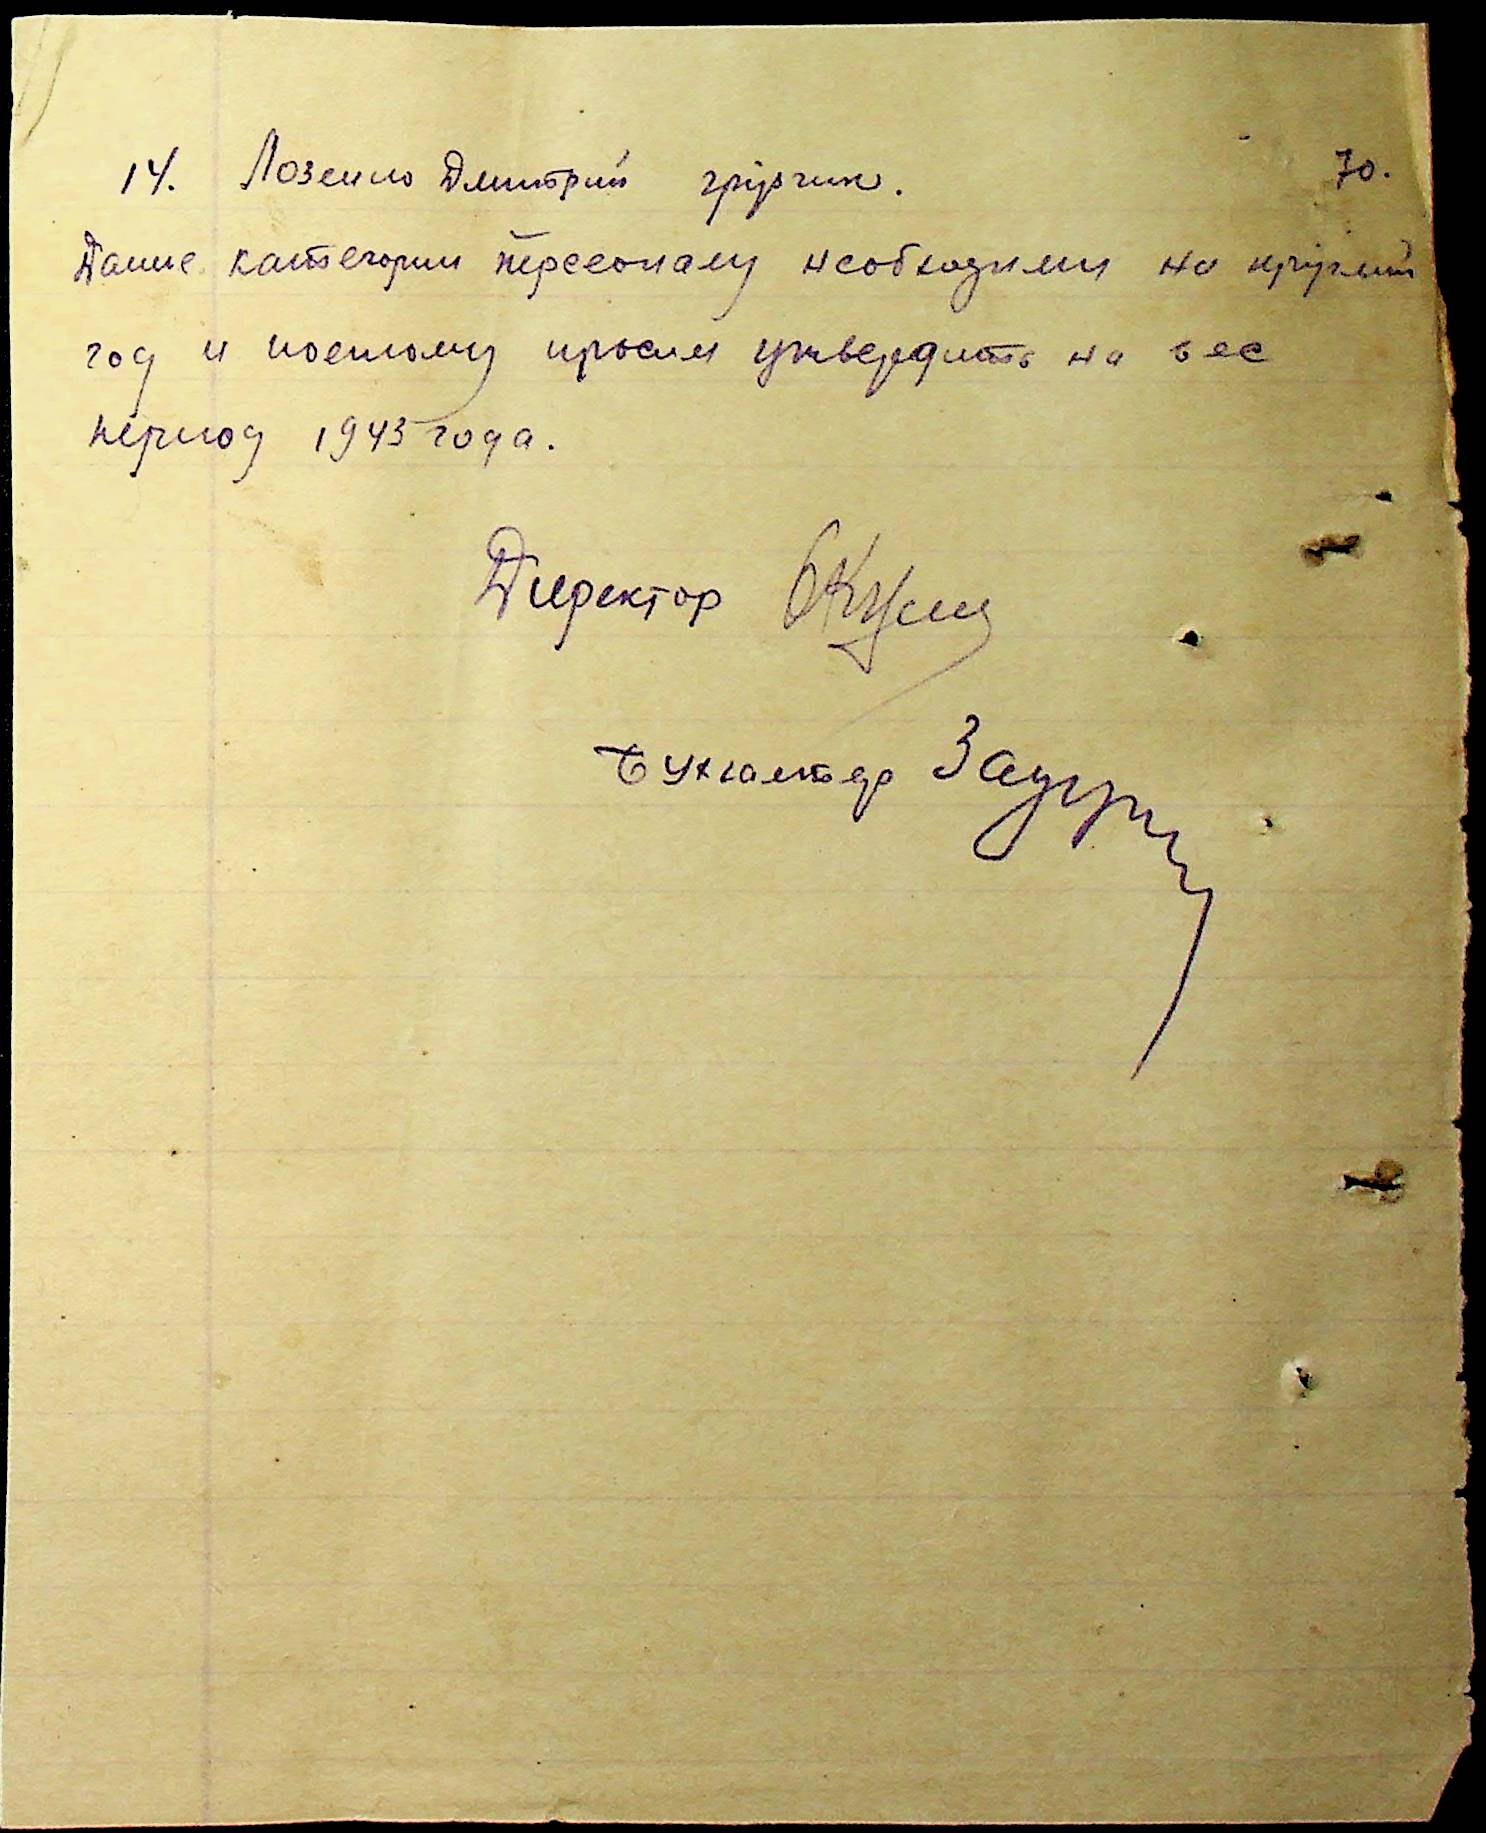 14. Лозенко Дмитрий грузчик. 70.
Даные категории персоналу необходимы на круглый
год и поетому просим утвердить на вес
период 1943 года.
Директор
Бухгалтер